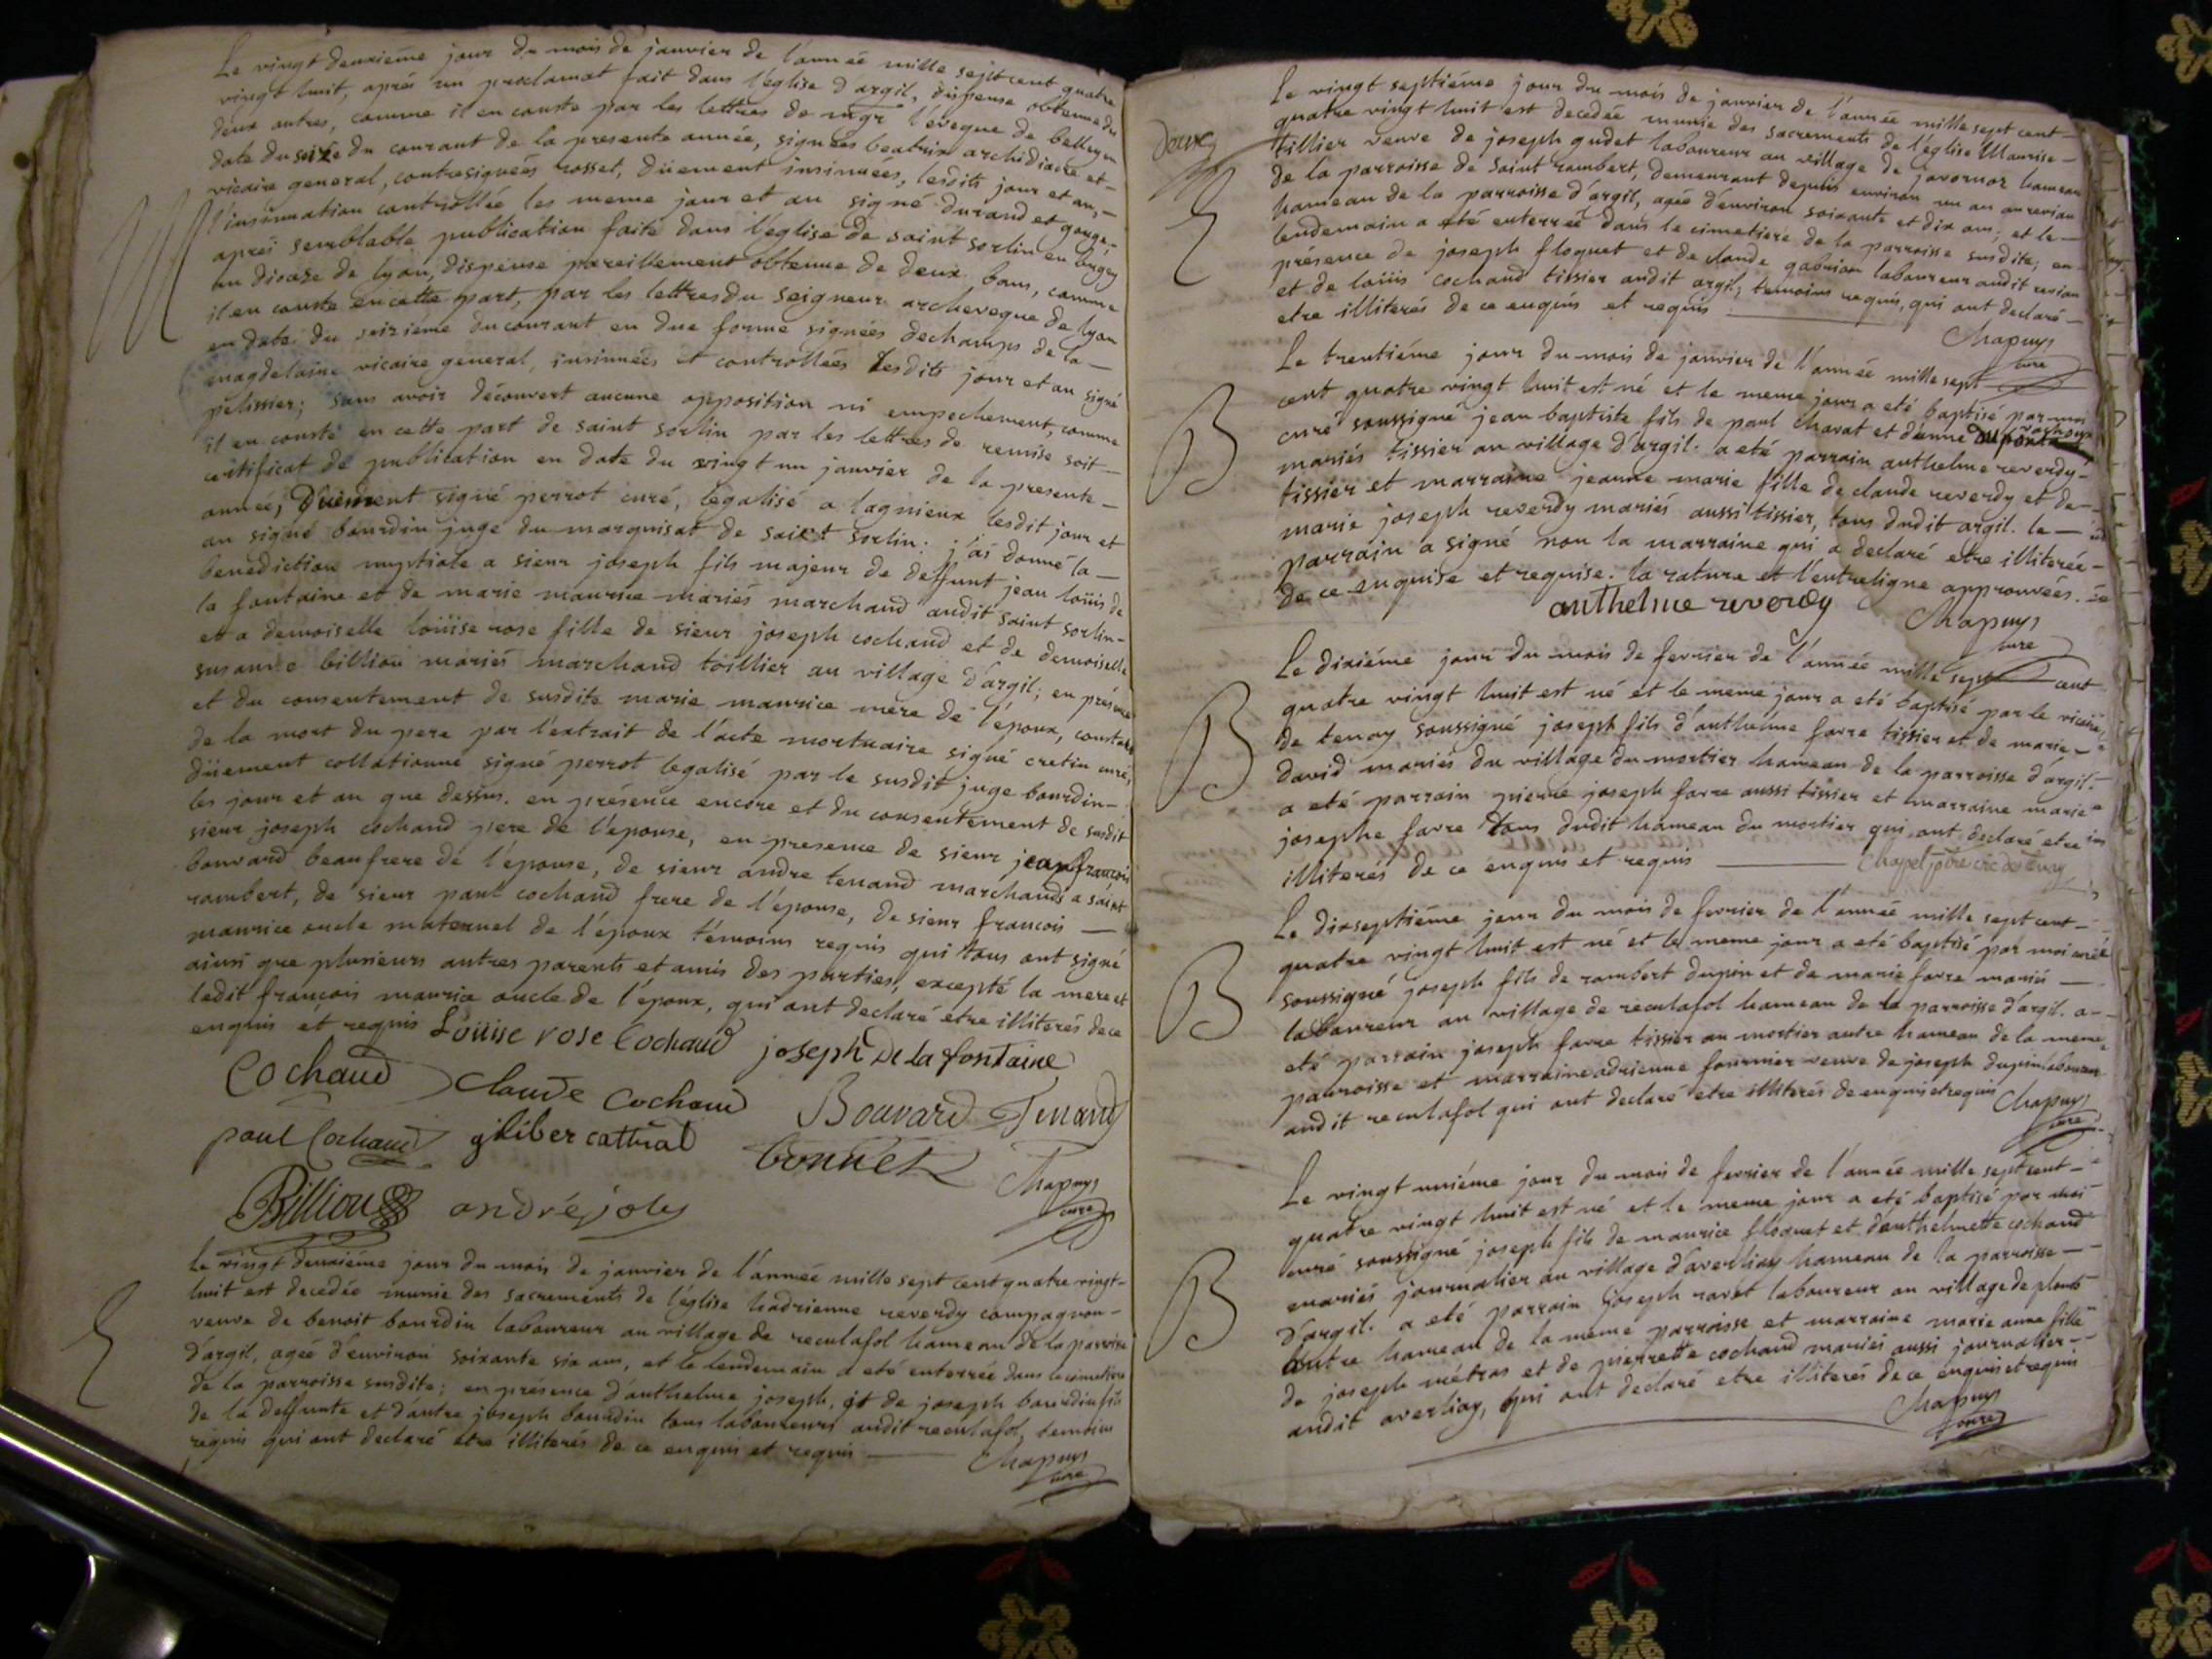 Le vingt deuxiéme jour du mois de janvier de l'année mille sept cent quatre
vingt huit, aprés un proclamat fait dans l'église d'argil, dispense obtenue du
deux autres, comme il en conste par les lettres de mgr l'éveque de belley en
date du sixe du courant de la presente année, signées beatrix archidiacre et
vicaire general, contresignées rosset, düement insinuées, lesdits jour et an,
l'insinuation controllée les meme jour et an signé durand et gouge,
aprés semblable publication faite dans l'église de saint sorlin en bugey
au diocese de lyon, dispense pareillement obtenue de deux bans, comme
il en conste en cette part, par les lettres du seigneur archeveque de lyon
en date du seiziéme du courant en due forme signées dechamps de la
magdelaine vicaire general, insinuées et controllées lesdits jour et an signé
pelissier; sans avoir découvert aucune opposition ni empechement, comme
il en conste en cette part de saint sorlin par les lettres de remise soit
certificat de publication en date du vingt un janvier de la presente
année, düement signé perrot curé, legalisé a lagnieux lesdit jour et
an signé bourdin juge du marquisat de saint sorlin: j'ai donné la
benediction nuptiale a sieur joseph fils majeur de deffunt jean loüis de
la fontaine et de marie maurice mariés marchand audit saint sorlin
et a demoiselle loüise rose fille de sieur joseph cochand et de demoiselle
susanne billion mariés marchand toillier au village d'argil; en présence
et du consentement de susdite marie maurice mere de l'époux, constaté
de la mort du pere par l'extrait de l'acte mortuaire signé cretin curé,
düement collationné signé perrot legalisé par le susdit juge bourdin
les jour et an que dessus. en présence encore et du consentement de susdit
sieur joseph cochand pere de l'épouse, en presence de sieur jean françois
bouvard beaufrere de l'épouse, de sieur andre tenand marchands a saint
rambert, de sieur paul cochand frere de l'épouse, de sieur francois
maurice oncle maternel de l'époux témoins requis qui tous ont signé
ainsi que plusieurs autres parents et amis des parties, excepté la mere et
ledit francois maurice oncle de l'époux, qui ont declaré etre illiterés de ce
enquis et requis Loüise rose Cochaud joseph De La fontaine
Cochaud Claude Cochaud Bouvard Tenand
paul Cochaud gliber cattiral bonnet
Billion andréjoly Chapuys
curé
Le vingt deuxiéme jour du mois de janvier de l'année mille sept cent quatre vingt
huit est decedée munie des sacrements de l'église hadrienne reverdy compagnon
veuve de benoit bourdin laboureur au village de reculafol hameau de la parroisse
d'argil, agée d'environ soixante six ans, et le lendemain a eté enterrée dans le cimetiere
de la parroisse susdite; en présence d'anthelme joseph, et de joseph bourdin fils
de la deffunte et d'autre joseph bourdin tous laboureurs audit reculafol, temoins
requis qui ont declaré etre illiterés de ce enquis et requis
Chapuys
curé
Le vingt septiéme jour du mois de janvier de l'année mille sept cent
quatre vingt huit est decedée munie des sacrements de l'église Maurise
tillier veuve de joseph gudet laboureur au village de javornoz hameau
de la parroisse de saint rambert, demeurant depuis environ un an au revian
hameau de la parroisse d'argil, agée d'environ soixante et dix ans; et le
lendemain a eté enterrée dans le cimetiere de la parroisse susdite, en
présence de joseph floquet et de claude gabrion laboureur audit revian
et de loüis cochand tissier audit argil; temoins requis, qui ont declaré
etre illiterés de ce enquis et requis
Chapuys
curé
Le trentiéme jour du mois de janvier de l'année mille sept
cent quatre vingt huit est né et le meme jour a eté baptisé par moi
curé soussigné jean baptiste fils de paul charat et d'anne
mariés tissier au village d'argil. a eté parrain anthelme reverdy
tissier et marraine jeanne marie fille de claude reverdy et de
marie joseph reverdy mariés aussi tissier, tous dudit argil. le
parrain a signé non la marraine qui a declaré etre illiterée
de ce enquise et requise. la rature et l'entreligne approuvées.
anthelme reverdy Chapuys
curé
Le dixiéme jour du mois de fevrier de l'année mille sept cent
quatre vingt huit est né et le meme jour a eté baptisé par le vicaire
de tenay soussigné joseph fils d'anthelme favre tissier et de marie
david mariés du village du mortier hameau de la parroisse d'argil.
a eté parrain pierre joseph favre aussi tissier et marraine marie
josephe favre tous dudit hameau du mortier qui ont declaré etre
illiterés de ce enquis et requis Chapel ptre vic de tenay
Le dixseptiéme jour du mois de fevrier de l'année mille sept cent
quatre vingt huit est né et le meme jour a eté baptisé par moi curé
soussigné joseph fils de rambert dupin et de marie favre mariés
laboureur au village de reculafol hameau de la parroisse d'argil. a
eté parrain joseph favre tissier au mortier autre hameau de la meme
parroisse et marraine adrienne fournier veuve de joseph dupin laboureur
audit reculafol qui ont declaré etre illiterés de enquis et requis Chapuys
curé
Le vingt uniéme jour du mois de fevrier de l'année mille sept cent
quatre vingt huit est né et le meme jour a eté baptisé par moi
curé soussigné joseph fils de maurice floquet et d'anthelmette cochand
mariés journalier au village d'averliay hameau de la parroisse
d'argil. a eté parrain joseph ravet laboureur au village de plomb
autre hameau de la meme parroisse et marraine marie anne fille
de joseph métras et de pierrette cochand mariés aussi journalier
audit averliay, qui ont declaré etre illiterés de ce enquis et requis
Chapuys
curé